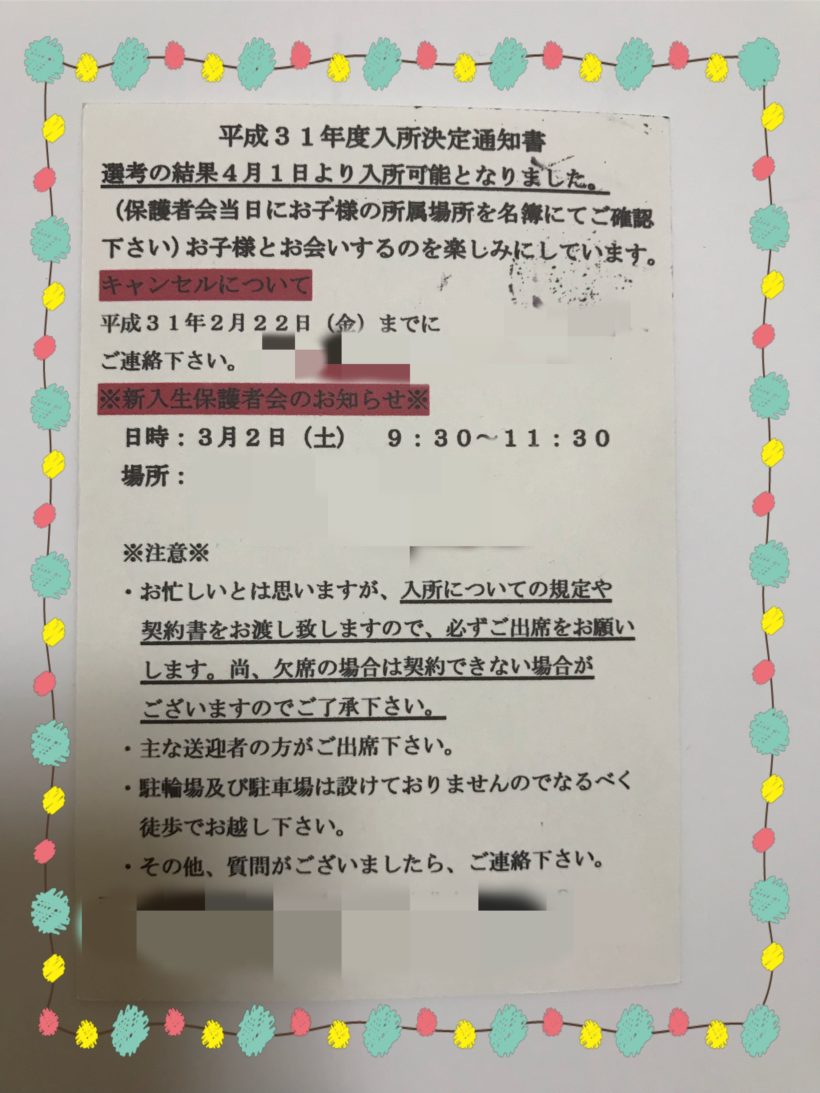 平成31年度入所決定通知書
選考の結果4月1日より入所可能となりました。
(保護者会当日にお子様の所属場所を名簿にてご確認
下さい)お子様とお会いするのを楽しみにしています。
キャンセルについて
平成31年2月22日(金)までに
ご連絡下さい。
※新入生保護者会のお知らせ※
日時:3月2日(土) 9:30～11:30
場所:
※注意※
・お忙しいとは思いますが、入所についての規定や
契約書をお渡し致しますので、必ずご出席をお願い
します。尚、欠席の場合は契約できない場合が
ございますのでご了承下さい。
・主な送迎者の方がご出席下さい。
・駐輪場及び駐車場は設けておりませんのでなるべく
徒歩でお越し下さい。
・その他、質問がございましたら、ご連絡下さい。